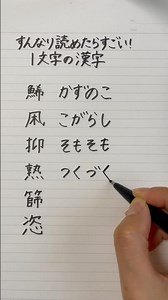 すんなり読めたらすごい!
1文字の漢字
鯑 かずのこ
凩 こがらし
抑 そもそも
熟 つくづく
篩
恣